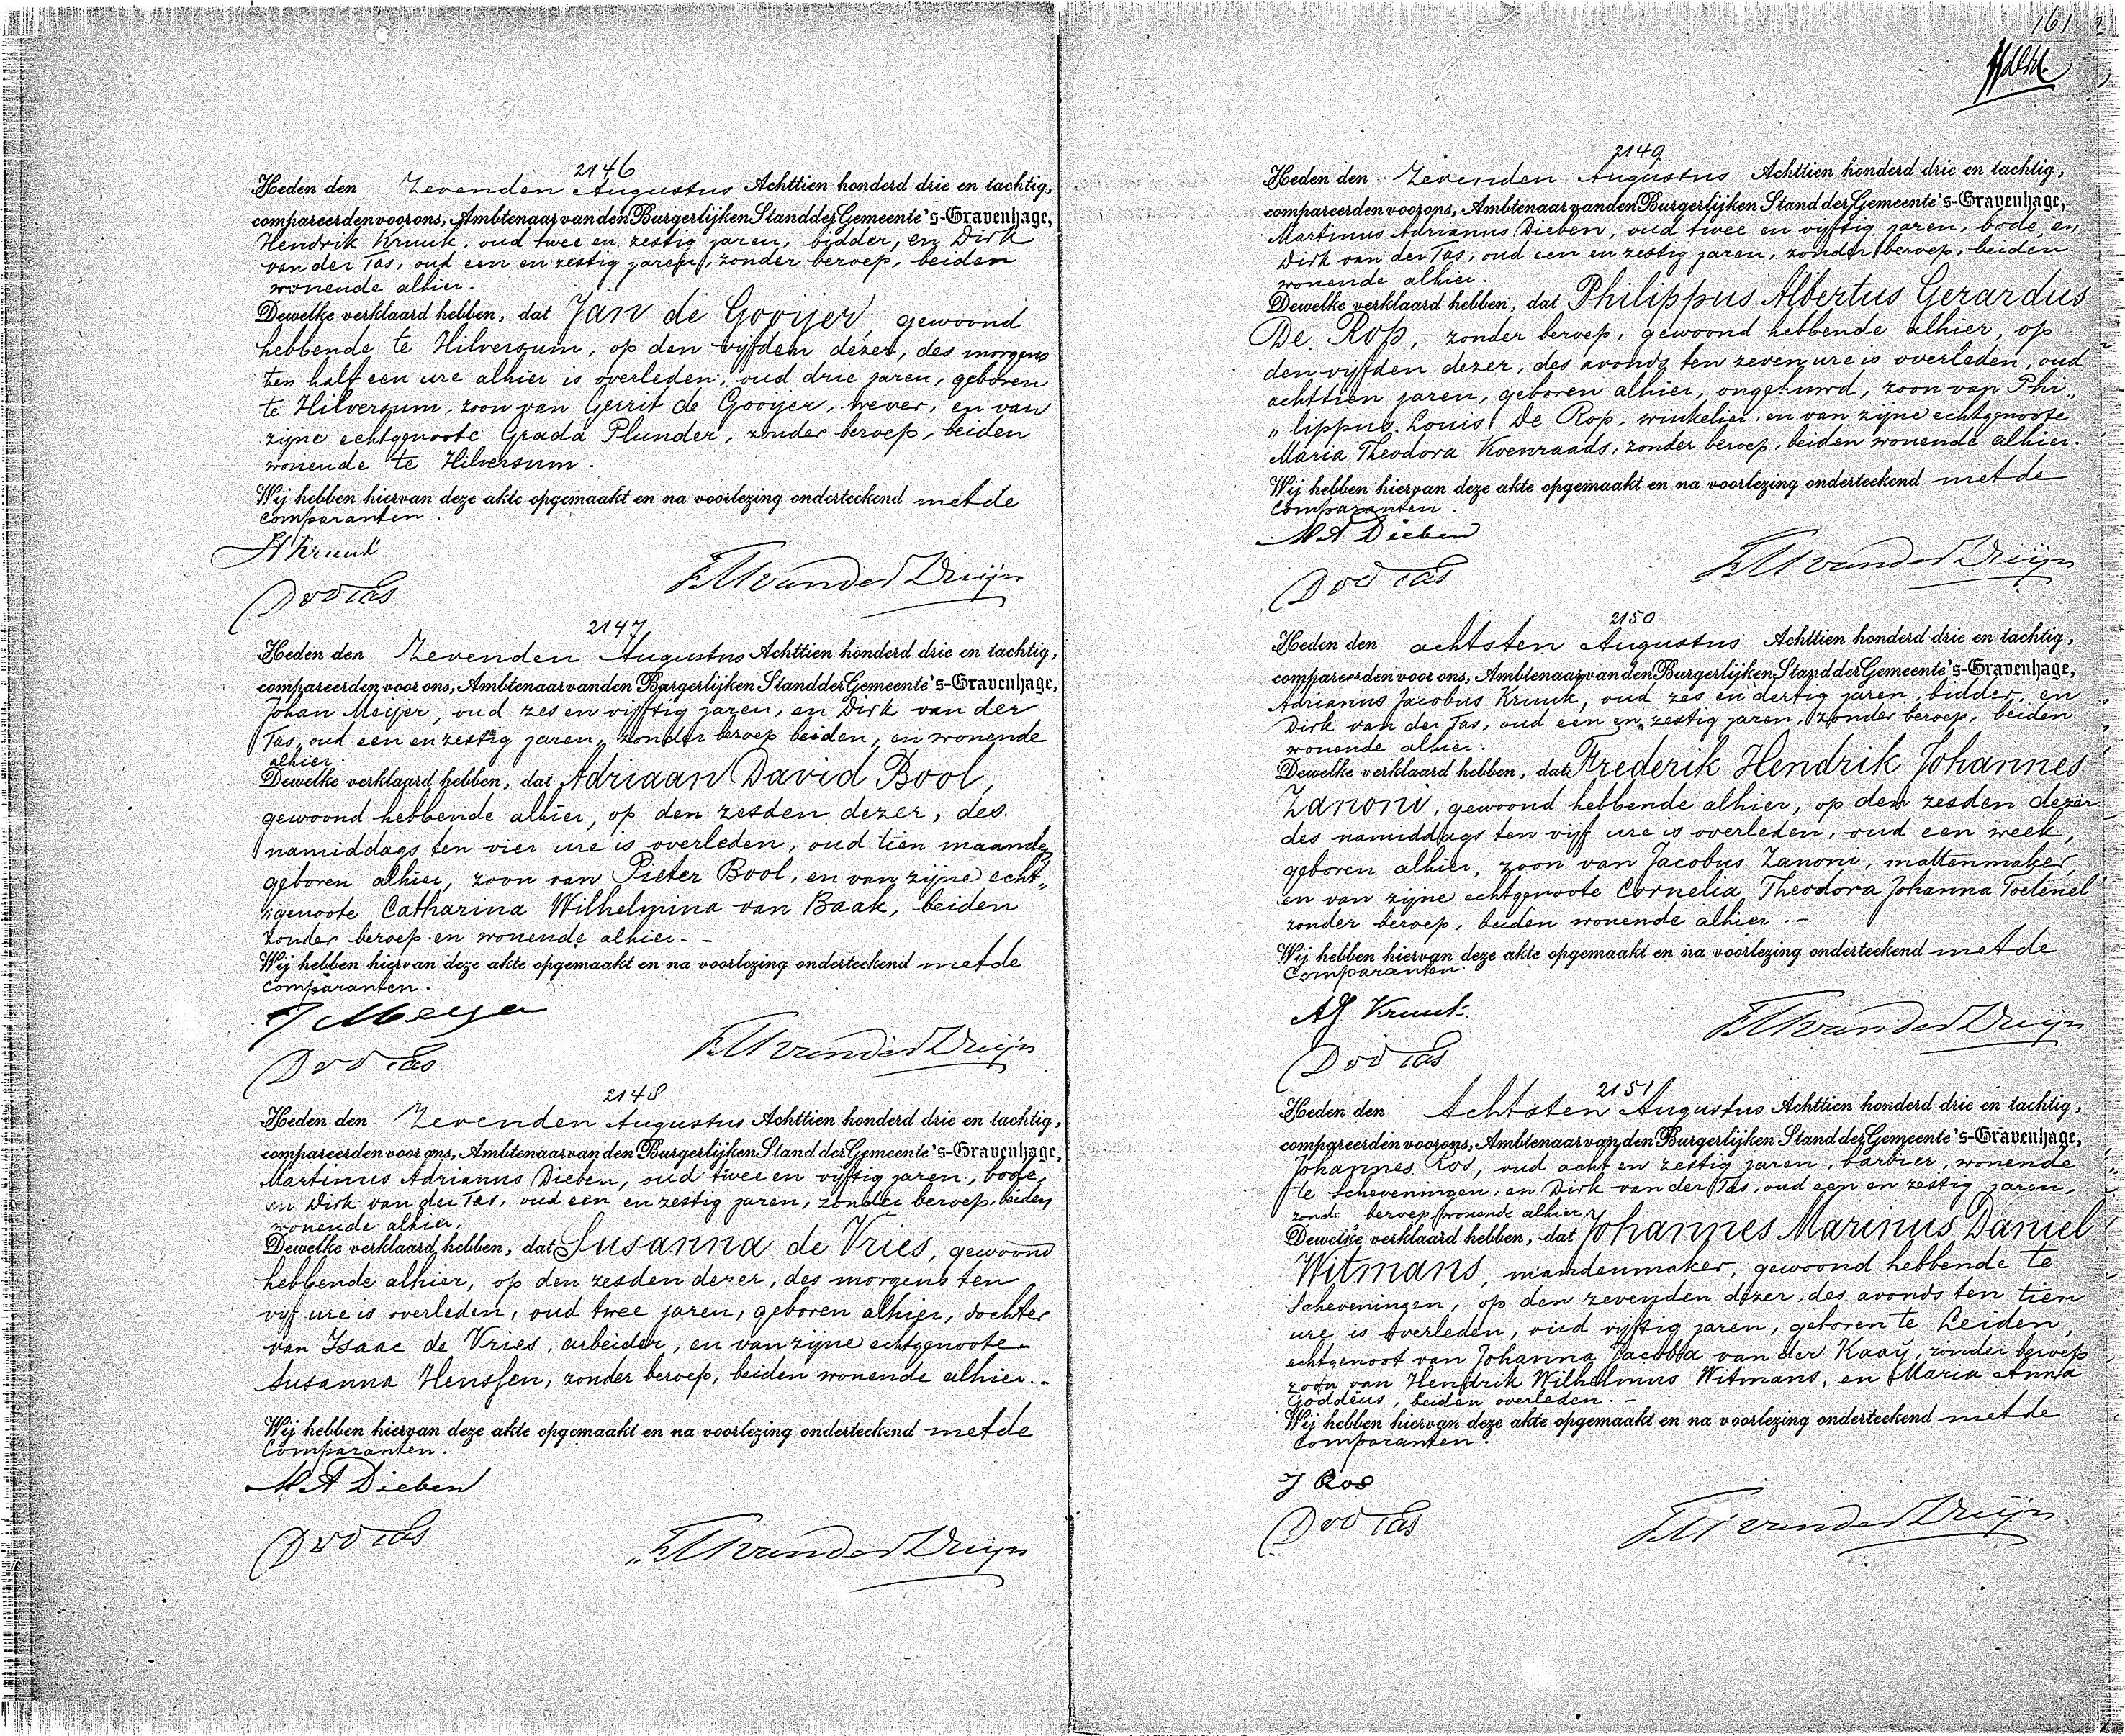 2146
Heden den Zevenden Augustus Achttien honderd drie en tachtig,
compareerden voor ons, Ambtenaar van den Burgerlijken Stand der Gemeente 's-Gravenhage,
Hendrik Kruuk, oud twee en zestig jaren, bidder, en Dirk
van der Tas, oud een en zestig jaren, zonder beroep, beiden
wonende alhier.
Dewelke verklaard hebben, dat Jan de Gooijer, gewoond
hebbende te Hilversum, op den vijfden dezer, des morgens
ten half een ure alhier is overleden, oud drie jaren, geboren
te Hilversum, zoon van Gerrit de Gooijer, wever, en van
zijne echtgenoote Grada Plunder, zonder beroep, beiden
wonende te Hilversum.
Wij hebben hiervan deze akte opgemaakt en na voorlezing onderteekend met de
comparanten.
H Kruuk
D vd Tas
van der Druijn
2147
Heden den Zevenden Augustus Achttien honderd drie en tachtig,
compareerden voor ons, Ambtenaar van den Burgerlijken Stand der Gemeente 's-Gravenhage,
Johan Meijer, oud zes en vijftig jaren, en Dirk van der
Tas, oud een en zestig jaren, zonder beroep beiden, en wonende
alhier.
Dewelke verklaard hebben, dat Adriaan David Bool,
gewoond hebbende alhier, op den zesden dezer, des
namiddags ten vier ure is overleden, oud tien maanden,
geboren alhier, zoon van Pieter Bool, en van zijne echt„
„genoote Catharina Wilhelmina van Baak, beiden
zonder beroep en wonende alhier. -
Wij hebben hiervan deze akte opgemaakt en na voorlezing onderteekend met de
comparanten.
J Meyer
D vd Tas
van der Druijn
2148
Heden den Zevenden Augustus Achttien honderd drie en tachtig,
compareerden voor ons, Ambtenaar van den Burgerlijken Stand der Gemeente 's-Gravenhage,
Martinus Adrianus Dieben, oud twee en vijftig jaren, bode,
en Dirk van der Tas, oud een en zestig jaren, zonder beroep, beiden
wonende alhier.
Dewelke verklaard hebben, dat Susanna de Vries, gewoond
hebbende alhier, op den zesden dezer, des morgens ten
vijf ure is overleden, oud twee jaren, geboren alhier, dochter
van Isaac de Vries, arbeider, en van zijne echtgenoote
Susanna Henssen, zonder beroep, beiden wonende alhier. -
Wij hebben hiervan deze akte opgemaakt en na voorlezing onderteekend met de
Comparanten.
M A Dieben
D vd Tas
van der Druijn
161
2149
Heden den Zevenden Augustus Achttien honderd drie en tachtig,
compareerden voor ons, Ambtenaar van den Burgerlijken Stand der Gemeente 's-Gravenhage,
Martinus Adrianus Dieben, oud twee en vijftig jaren, bode, en
Dirk van der Tas, oud een en zestig jaren, zonder beroep, beiden
wonende alhier.
Dewelke verklaard hebben, dat Philippus Albertus Gerardus
De Rop, zonder beroep, gewoond hebbende alhier, op
den vijfden dezer, des avonds ten zeven ure is overleden, oud
achttien jaren, geboren alhier, ongehuwd, zoon van Phi„
„lippus Louis De Rop, winkelier, en van zijne echtgenoote
Maria Theodora Koenraads, zonder beroep, beiden wonende alhier.
Wij hebben hiervan deze akte opgemaakt en na voorlezing onderteekend met de
Comparanten.
M A Dieben
D vd Tas
van der Druijn
2150
Heden den achtsten Augustus Achttien honderd drie en tachtig,
compareerden voor ons, Ambtenaar van den Burgerlijken Stand der Gemeente 's-Gravenhage,
Adrianus Jacobus Kruuk, oud zes en dertig jaren, bidder, en
Dirk van der Tas, oud een en zestig jaren, zonder beroep, beiden
wonende alhier.
Dewelke verklaard hebben, dat Frederik Hendrik Johannes
Zanoni, gewoond hebbende alhier, op den zesden dezer
des namiddags ten vijf ure is overleden, oud een week,
geboren alhier, zoon van Jacobus Zanoni, mattenmaker,
en van zijne echtgenoote Cornelia Theodora Johanna Toetenel
zonder beroep, beiden wonende alhier. -
Wij hebben hiervan deze akte opgemaakt en na voorlezing onderteekend met de
Comparanten.
AJ Kruuk
D vd Tas
van der Druijn
2151
Heden den Achtsten Augustus Achttien honderd drie en tachtig,
compareerden voor ons, Ambtenaar van den Burgerlijken Stand der Gemeente 's-Gravenhage,
Johannes Ros, oud acht en zestig jaren, barbier, wonende
te Scheveningen, en Dirk van der Tas, oud een en zestig jaren,
zonder beroep, wonende alhier.
Dewelke verklaard hebben, dat Johannes Marinus Daniel
Witmans, mandenmaker, gewoond hebbende te
Scheveningen, op den zevenden dezer, des avonds ten tien
ure is overleden, oud vijftig jaren, geboren te Leiden,
echtgenoot van Johanna Jacoba van der Kaaij, zonder beroep
zoon van Hendrik Wilhelmus Witmans, en Maria Anna
Goddeus, beiden overleden. -
Wij hebben hiervan deze akte opgemaakt en na voorlezing onderteekend met de
comparanten.
J Ros
D vd Tas
van der Druijn